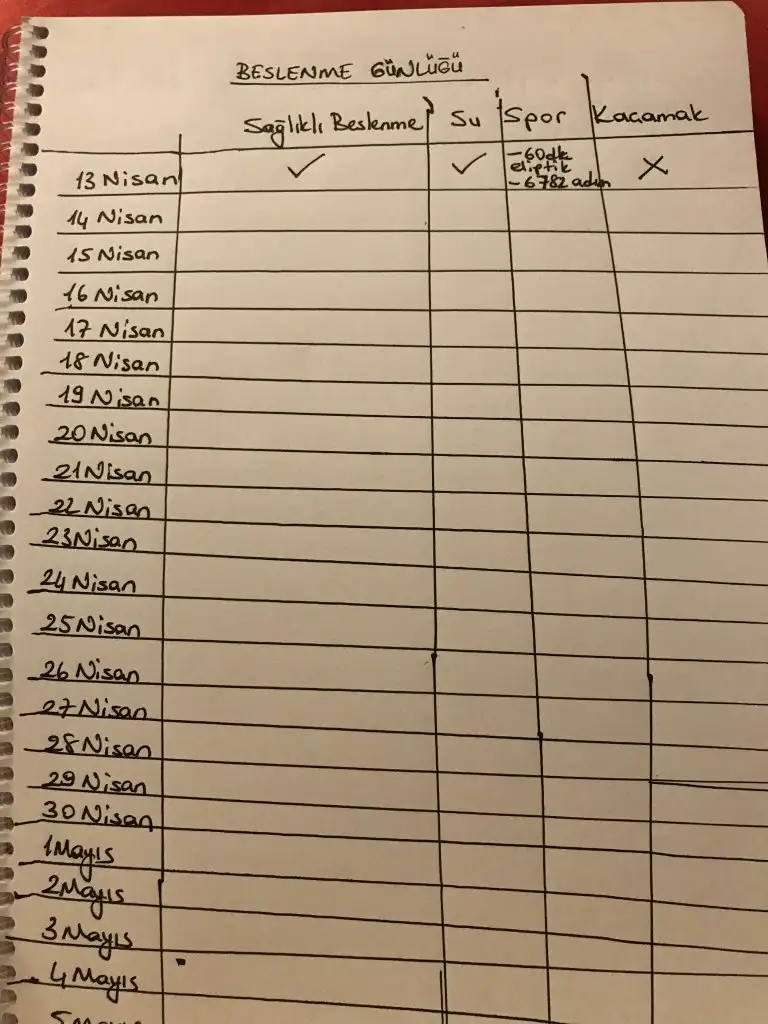 BESLENME GÜNLÜĞÜ
Sağlıklı Beslenme Su Spor Kacamak
13 Nisan ✓ ✓ -60dk eliptik -6782 adım X
14 Nisan
15 Nisan
16 Nisan
17 Nisan
18 Nisan
19 Nisan
20 Nisan
21 Nisan
22 Nisan
23 Nisan
24 Nisan
25 Nisan
26 Nisan
27 Nisan
28 Nisan
29 Nisan
30 Nisan
1 Mayıs
2 Mayıs
3 Mayıs
4 Mayıs